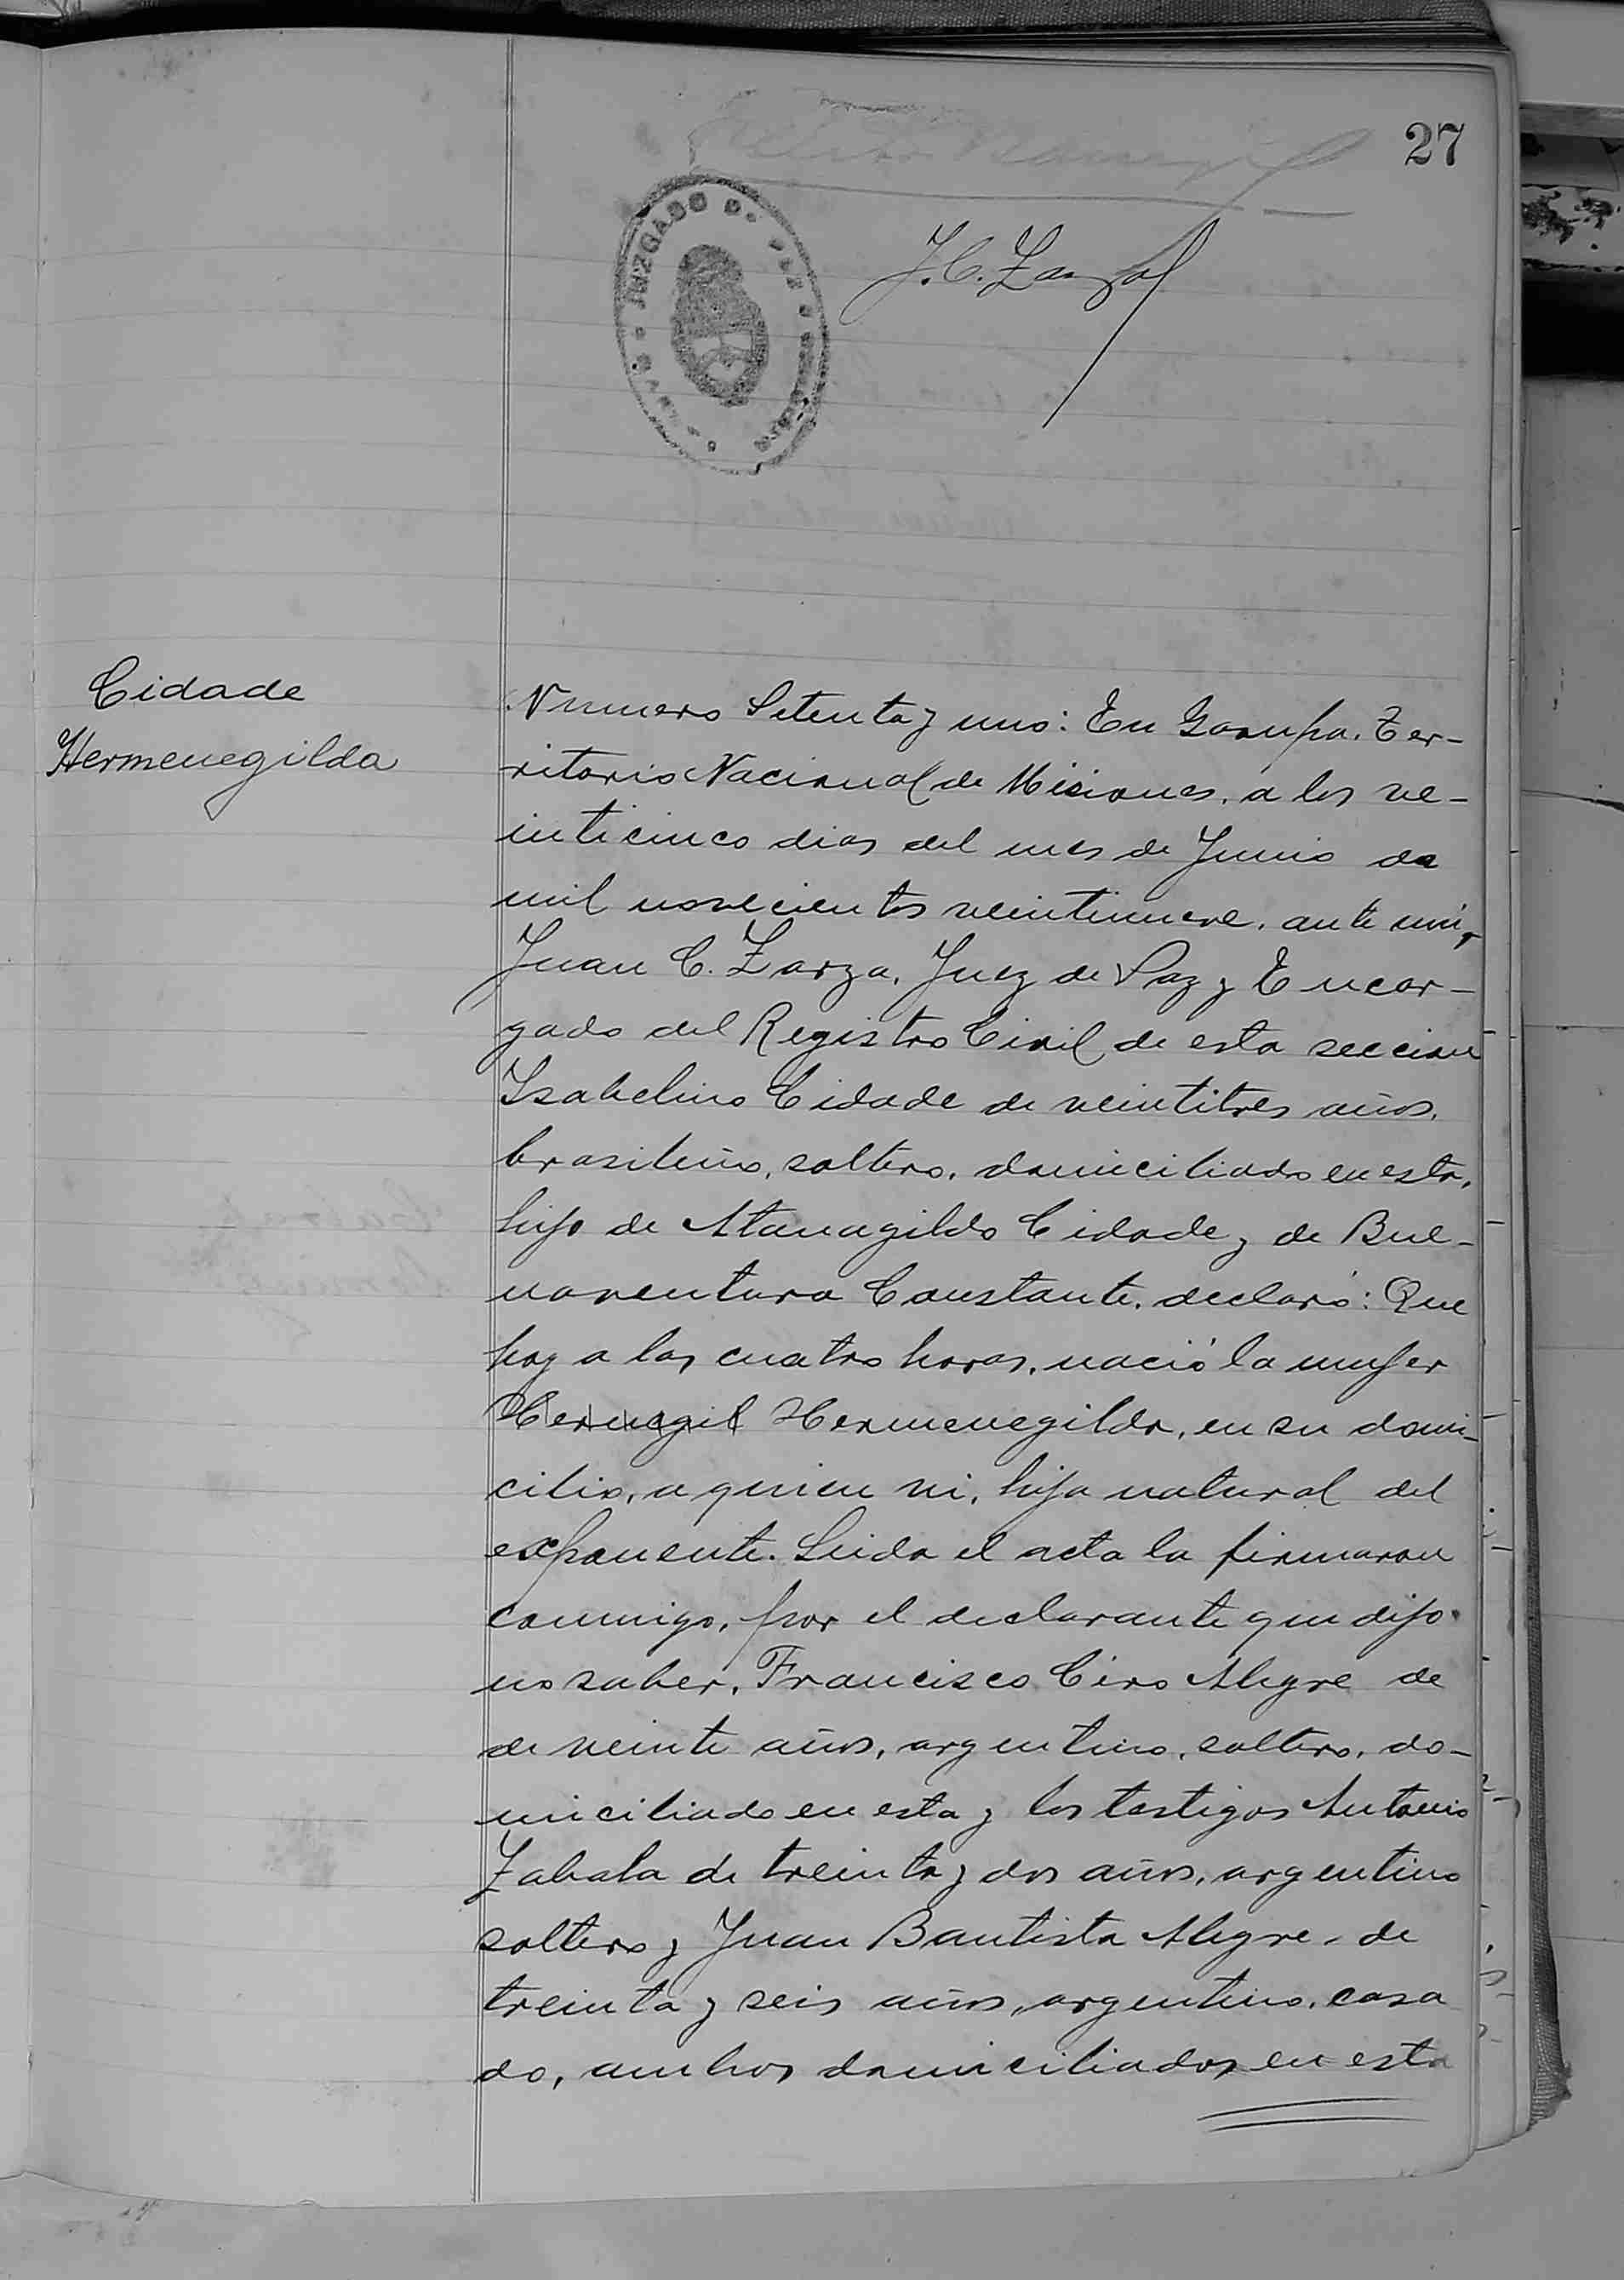 27
J. C. Zarza
JUZGADO DE PAZ
Cidade
Hermenegilda
Numero Setenta y uno: En Garupa. Ter-
ritorio Nacional de Misiones, a los ve-
inticinco dias del mes de Junio de
mil novecientos veintinueve, ante mi,
Juan C. Zarza, Juez de Paz y Encar-
gado del Registro Civil de esta seccion
Isabelino Cidade de veintitres años,
brasileño, soltero, domiciliado en esta,
hijo de Atanagildo Cidade y de Bue-
naventura Constante, declaró: Que
hoy a las cuatro horas, nació la mujer
Hermegil Hermenegilda, en su domi-
cilio, a quien vi, hija natural del
exponente. Leida el acta la firmaron
conmigo, por el declarante que dijo
no saber, Francisco Ciro Alegre de
de veinte años, argentino, soltero, do-
miciliado en esta y los testigos Antonio
Zabala de treinta y dos años, argentino
soltero y Juan Bautista Alegre, de
treinta y seis años, argentino, casa
do, ambos domiciliados en esta